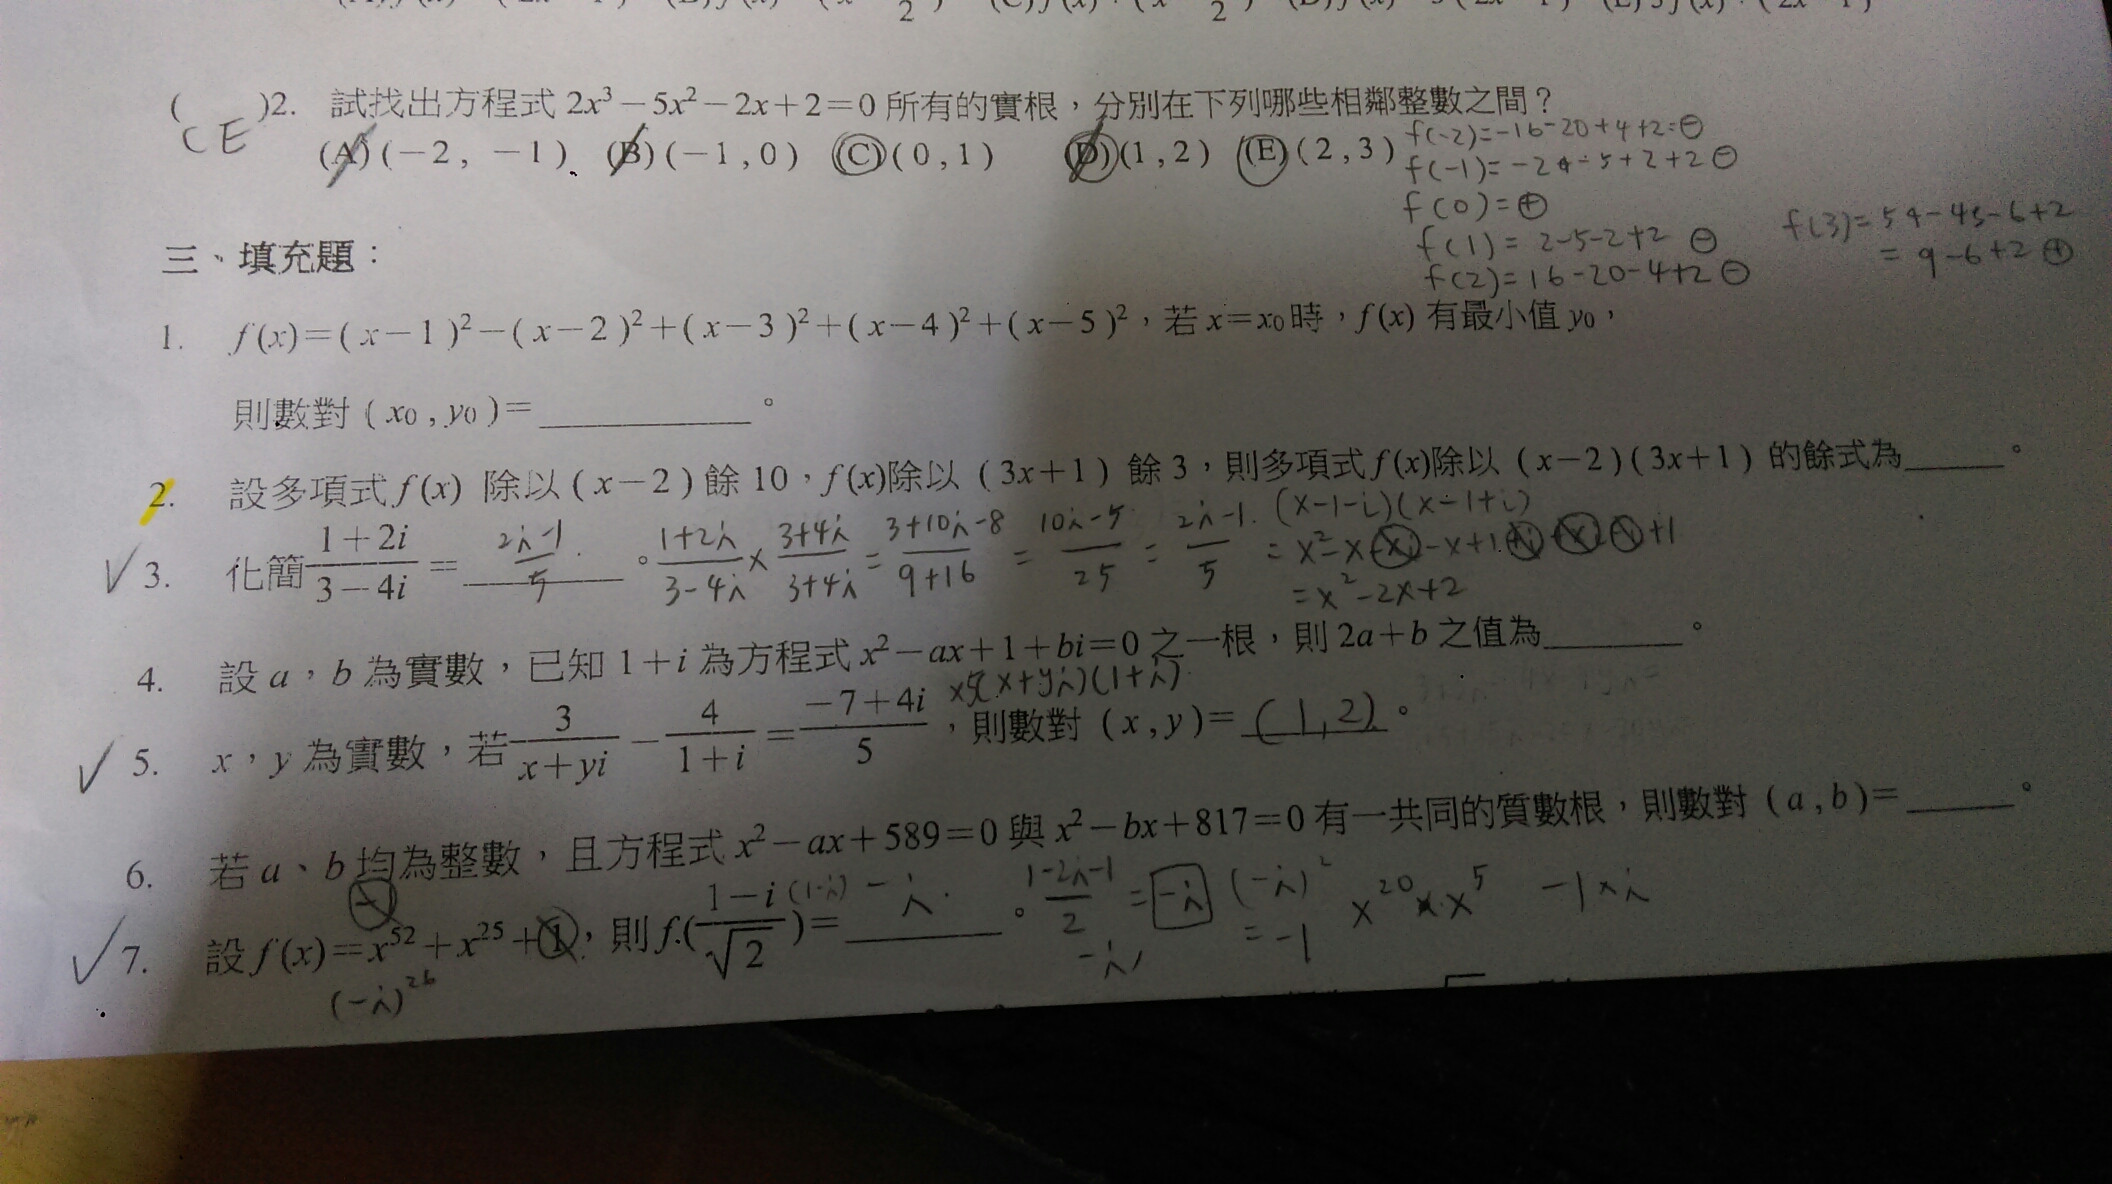 ( CE )2. 試找出方程式 2x³－5x²－2x＋2＝0 所有的實根，分別在下列哪些相鄰整數之間？
(A)(－2, －1) (B)(－1,0) (C)(0,1) (D)(1,2) (E)(2,3)
f(-2)=-16-20+4+2=⊖
f(-1)=-2-5+2+2⊖
f(0)=⊕
f(1)=2-5-2+2 ⊖
f(2)=16-20-4+2⊖
f(3)=54-45-6+2
=9-6+2⊕
三、填充題：
1. f(x)=(x－1)²－(x－2)²＋(x－3)²＋(x－4)²＋(x－5)²，若 x＝x₀時，f(x) 有最小值 y₀，
則數對 (x₀,y₀)＝________。
2. 設多項式 f(x) 除以 (x－2) 餘 10，f(x)除以 (3x＋1) 餘 3，則多項式 f(x)除以 (x－2)(3x＋1) 的餘式為____。
(x-1-i)(x-1+i)
✓3. 化簡 (1＋2i)/(3－4i)＝ (2i-1)/5 。 (1+2i)/(3-4i) × (3+4i)/(3+4i) = (3+10i-8)/(9+16) = (10i-5)/25 = (2i-1)/5
=x²-x-xi-x+1+i+xi-i+1
=x²-2x+2
4. 設 a，b 為實數，已知 1＋i 為方程式 x²－ax＋1＋bi＝0 之一根，則 2a＋b 之值為______。
×5(x+yi)(1+i)
✓5. x，y 為實數，若 3/(x＋yi) － 4/(1＋i) ＝ (－7＋4i)/5，則數對 (x,y)＝(1,2)。
6. 若 a、b 均為整數，且方程式 x²－ax＋589＝0 與 x²－bx＋817＝0 有一共同的質數根，則數對 (a,b)＝____。
✓7. 設 f(x)＝x⁵²＋x²⁵＋1，則 f((1－i)/√2)＝ -i 。
(1-i)
(1-2i-1)/2 = -i
(-i)²
=-1
x²⁰·x⁵
-1×i
-i
(-i)²⁶